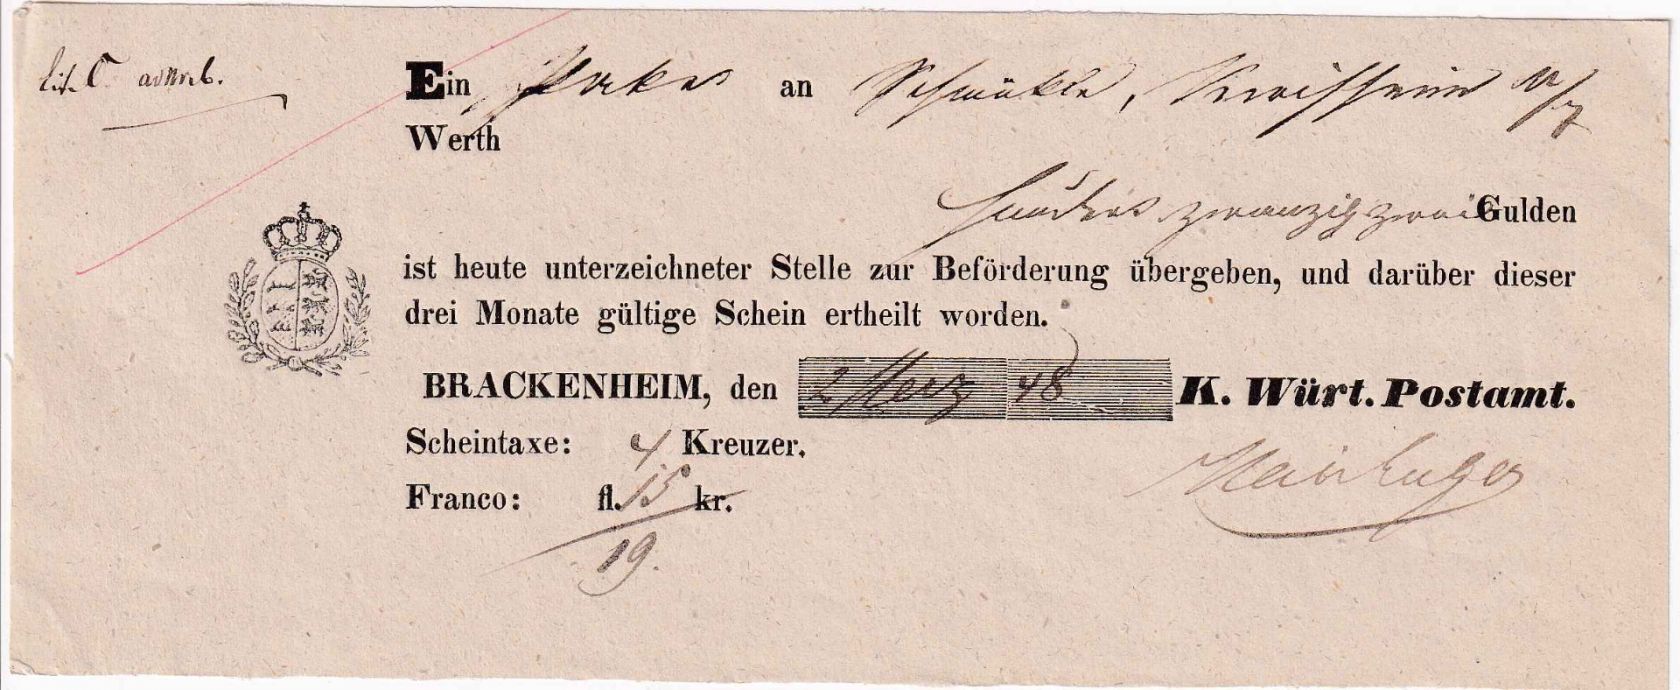 lit. C
Ein Paket an Schmükle,
Werth
hundert zwanzig zwei Gulden
ist heute unterzeichneter Stelle zur Beförderung übergeben, und darüber dieser
drei Monate gültige Schein ertheilt worden.
BRACKENHEIM, den 2 Merz 48 K. Würt. Postamt.
Scheintaxe: 4 Kreuzer.
Franco: fl. 15 kr.
19.